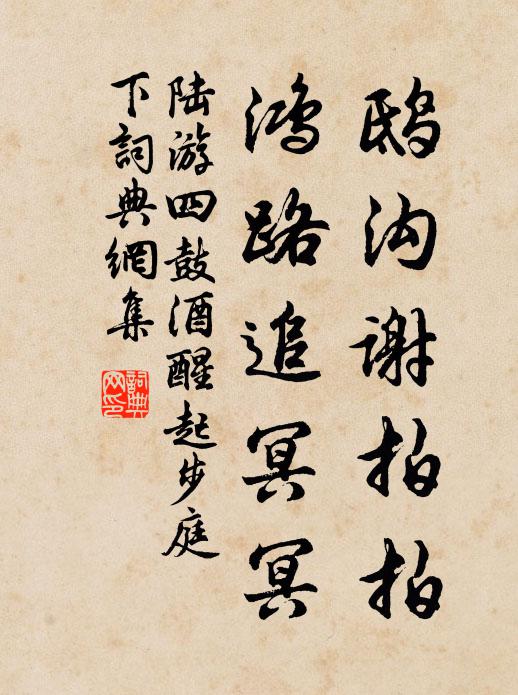 鸱沟谢拍拍
鸿路追冥冥
陆游四鼓酒醒起步庭
下詞典網集
詞典
网印